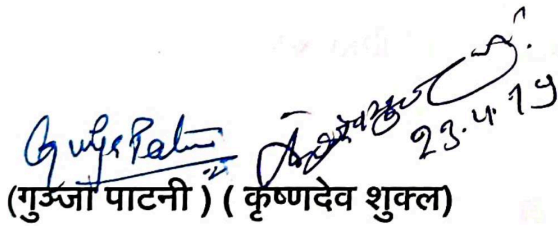 Gunja Patni
23.4.19
(गुञ्जा पाटनी ) ( कृष्णदेव शुक्ल)